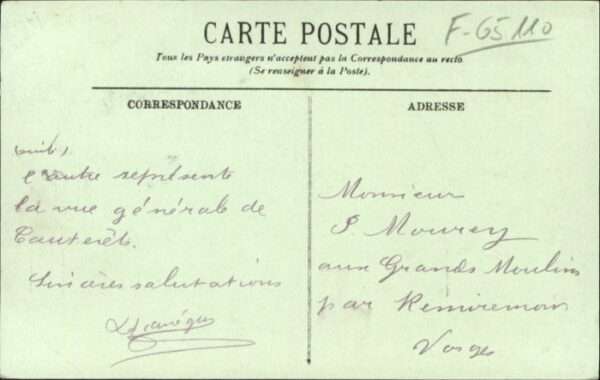 CARTE POSTALE
F-65110
Tous les Pays etrangers n'acceptent pas la Correspondance au recto
(Se renseigner à la Poste).
CORRESPONDANCE
ADRESSE
l'autre représente
la vue générale de
Cauterêts.
Sincères salutations
Monsieur
P. Mourey
aux Grands Moulins
par Remiremont
Vosges